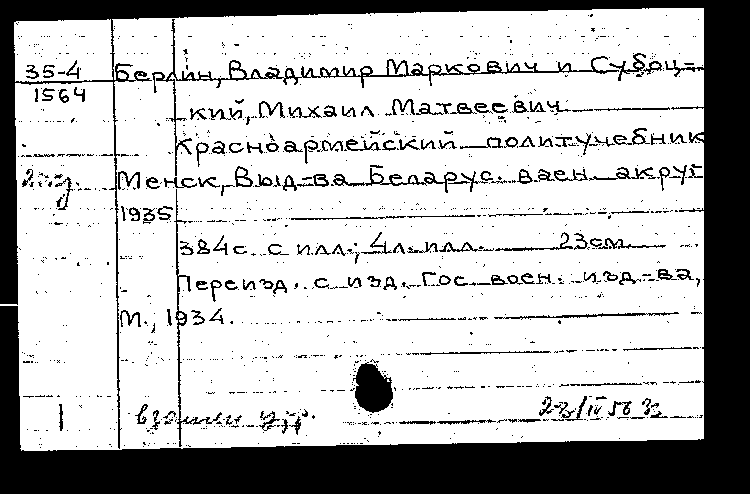 35-4
1564
Берлин, Владимир Маркович и Субоц-
кий, Михаил Матвеевич
Красноармейский политучебник
2 изд. Менск, Выд-ва Беларус. ваен. акруг
1935
384с. с илл.; 4л. илл. 23см.
Переизд. с изд. Гос. воен. изд-ва,
М., 1934.
1 взамен утр. 23/IV 56